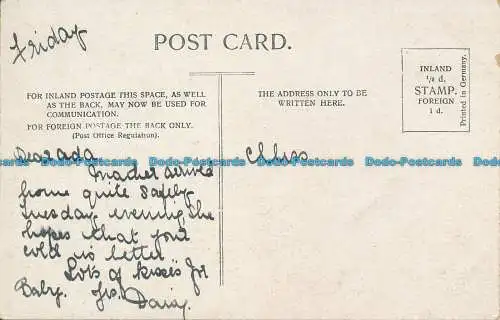 Friday
POST CARD.
FOR INLAND POSTAGE THIS SPACE, AS WELL
AS THE BACK, MAY NOW BE USED FOR
COMMUNICATION.
FOR FOREIGN POSTAGE THE BACK ONLY.
(Post Office Regulation).
THE ADDRESS ONLY TO BE
WRITTEN HERE.
INLAND
½ d.
STAMP.
FOREIGN
1 d.
Printed in Germany.
Dodo-Postcards Dodo-Postcards Dodo-Postcards
Dear ada
arrived
home quite safely
tuesday evening, she
hopes that your
cold is better
Lots of kisses for
Baby. Daisy.
Miss